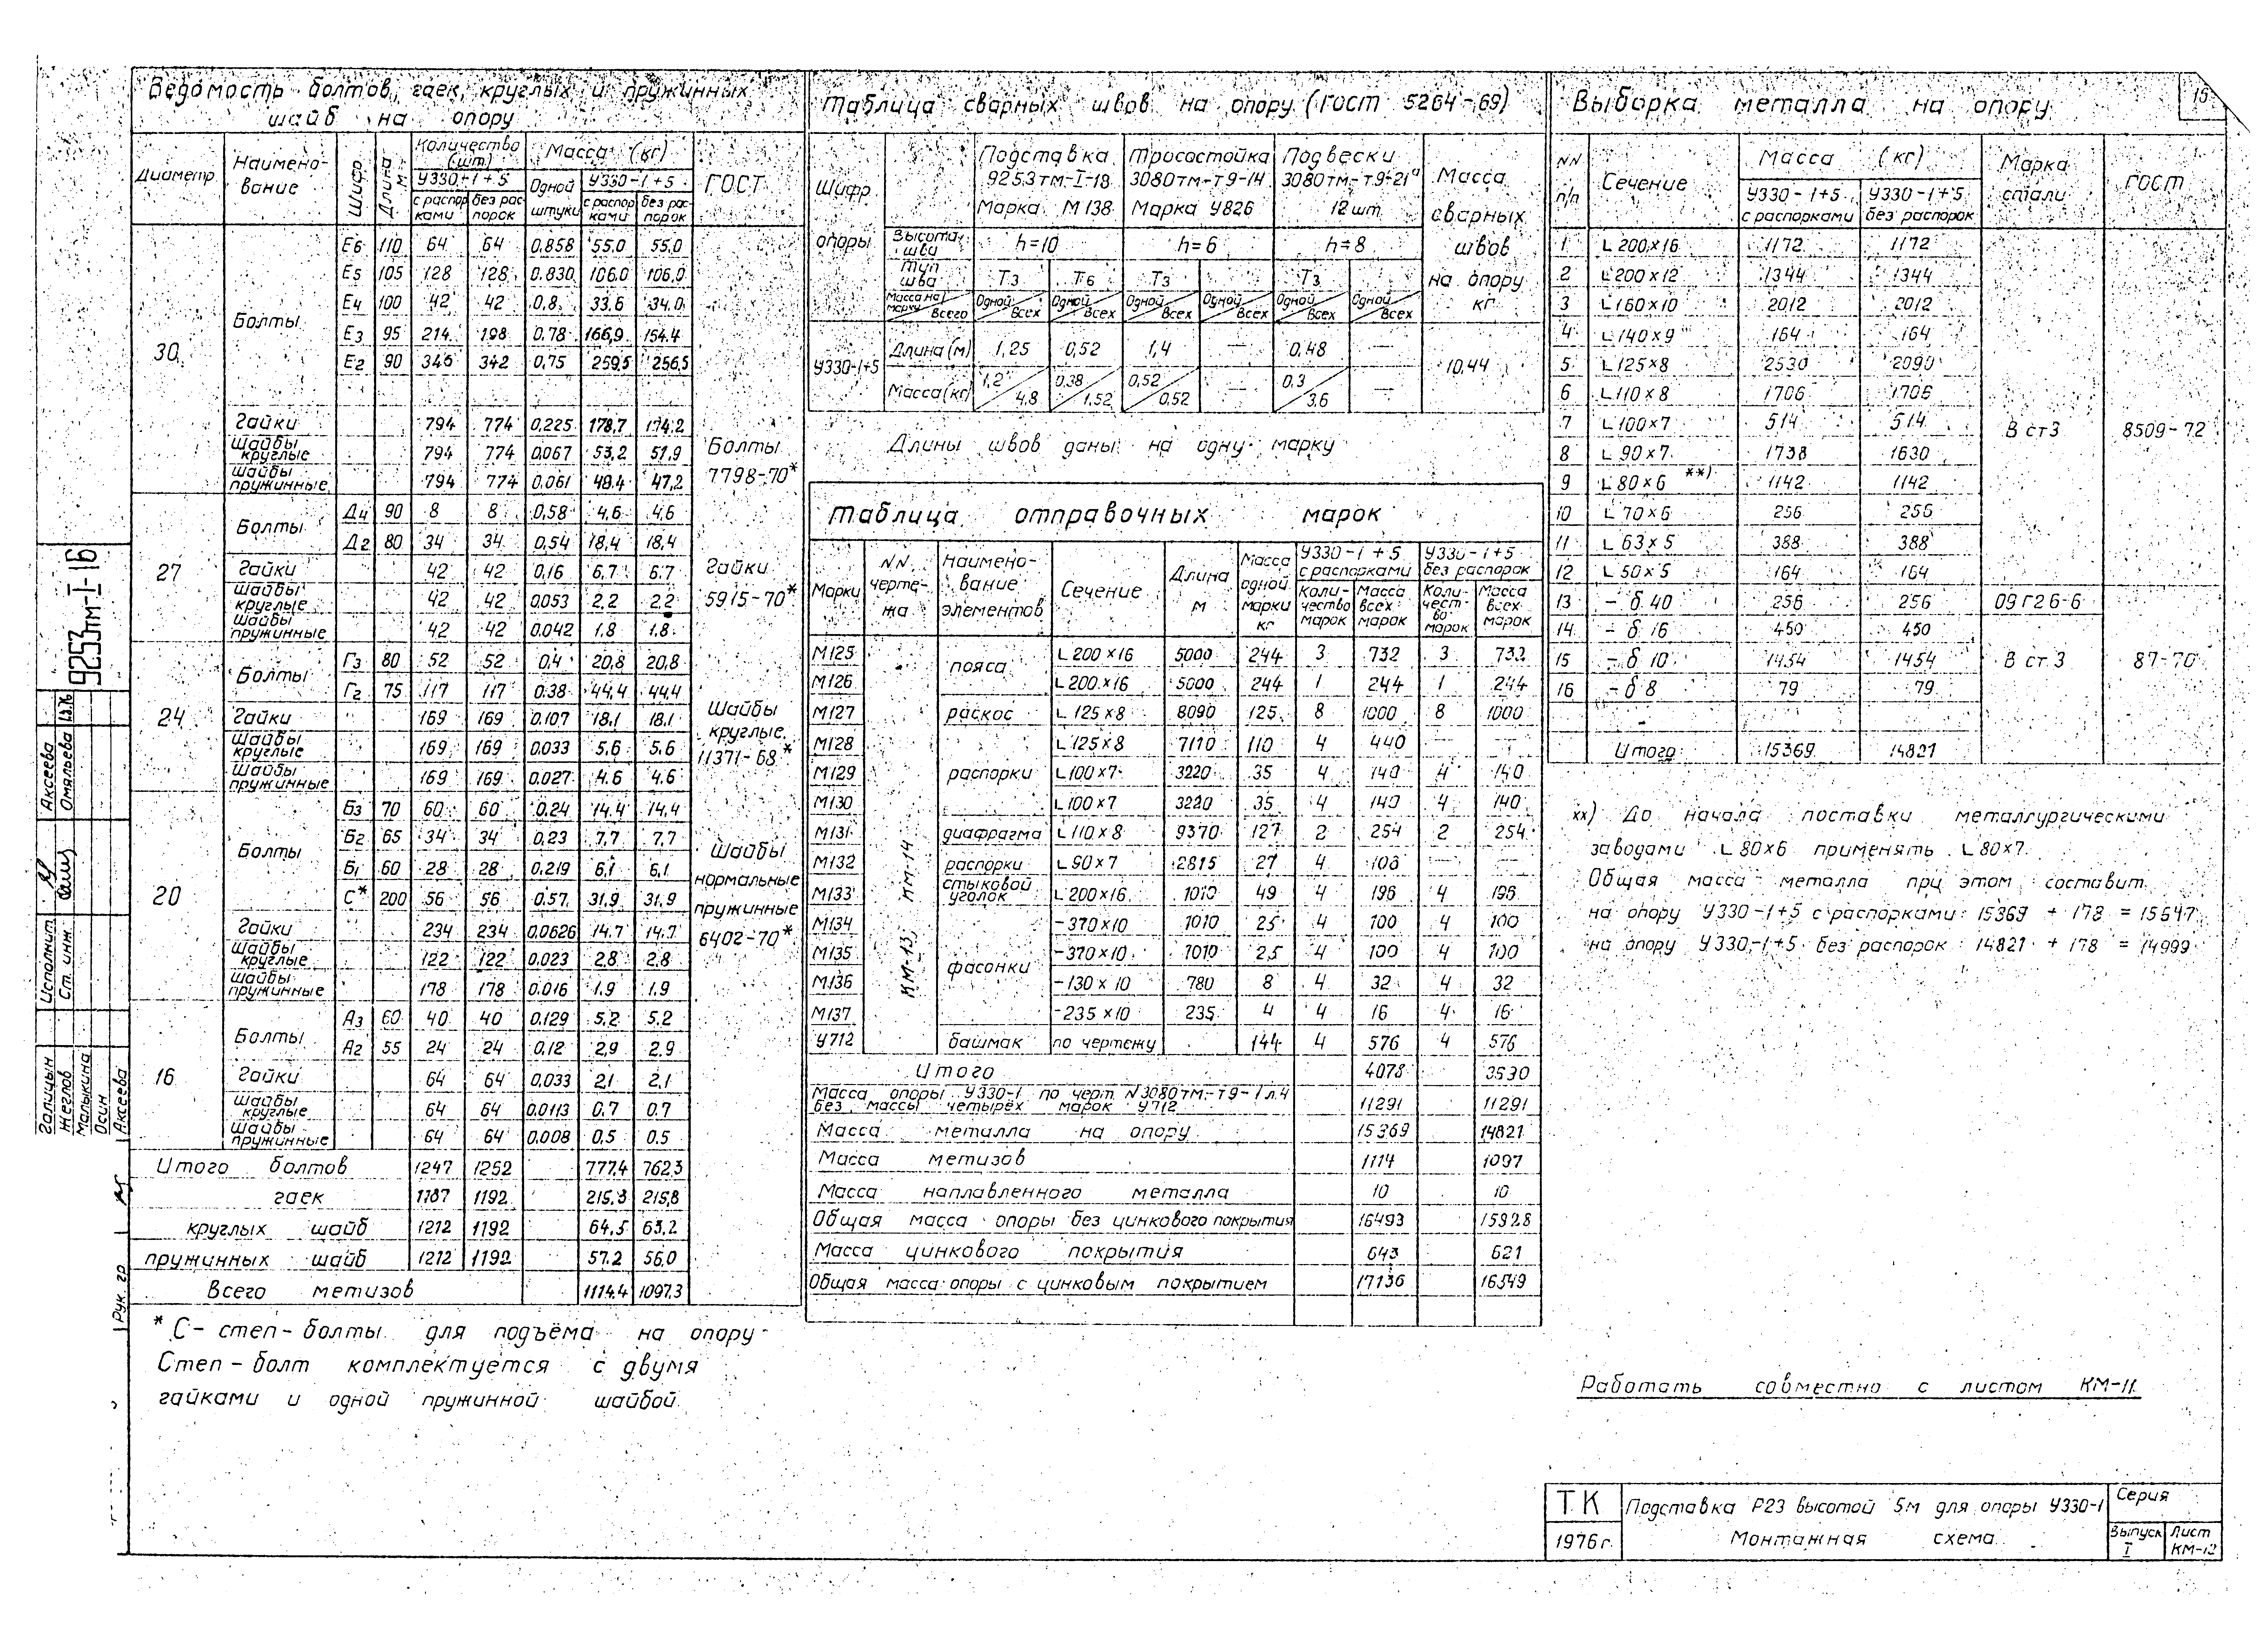 15
Ведомость болтов, гаек, круглых и пружинных
шайб на опору
Диаметр Наимено-вание Шифр Длина м Количество (шт) Масса (кг) ГОСТ
У330-1+5 Одной штуки У330-1+5
с распорками без распорок с распорками без распорок
30 Болты Е6 110 64 64 0.858 55.0 55.0
Е5 105 128 128 0.830 106.0 106.0
Е4 100 42 42 0.8 33.6 34.0
Е3 95 214 198 0.78 166,9 154.4
Е2 90 346 342 0,75 259,5 256,5
Гайки 794 774 0,225 178,7 174,2
Шайбы круглые 794 774 0.067 53,2 51,9
Шайбы пружинные 794 774 0.061 48.4 47,2
Болты 7798-70*
27 Болты Д4 90 8 8 0,58 4,6 4,6
Д2 80 34 34 0,54 18,4 18,4
Гайки 42 42 0,16 6,7 6.7
Шайбы круглые 42 42 0,053 2,2 2,2
Шайбы пружинные 42 42 0.042 1.8 1.8
Гайки 5915-70*
24 Болты Г3 80 52 52 0,4 20,8 20,8
Г2 75 117 117 0.38 44,4 44,4
Гайки 169 169 0.107 18,1 18,1
Шайбы круглые 169 169 0.033 5.6 5.6
Шайбы пружинные 169 169 0.027 4.6 4.6
Шайбы круглые 11371-68*
20 Болты Б3 70 60 60 0.24 14.4 14,4
Б2 65 34 34 0,23 7,7 7,7
Б1 60 28 28 0,219 6,1 6,1
С* 200 56 56 0.57 31,9 31,9
Гайки 234 234 0,0626 14.7 14.7
Шайбы круглые 122 122 0.023 2,8 2.8
Шайбы пружинные 178 178 0.016 1.9 1.9
Шайбы нормальные пружинные 6402-70*
16 Болты А3 60 40 40 0.129 5,2 5.2
А2 55 24 24 0,12 2,9 2.9
Гайки 64 64 0,033 2,1 2,1
Шайбы круглые 64 64 0,0113 0,7 0.7
Шайбы пружинные 64 64 0,008 0,5 0.5
Итого болтов 1247 1252 777.4 762,3
гаек 1187 1192 215,8
круглых шайб 1212 1192 64,5 63,2
пружинных шайб 1212 1192 57.2 56,0
Всего метизов 1114.4 1097.3
* С - степ-болты для подъёма на опору
Степ-болт комплектуется с двумя
гайками и одной пружинной шайбой.
Таблица сварных швов на опору (ГОСТ 5264-69)
Шифр опоры Подставка 9253тм-I-18 Марка М138 Тросостойка 3080тм-т9-14 Марка У826 Подвески 3080тм-т.9-21а 12 шт Масса сварных швов на опору кг
Высота шва h=10 h=6 h=8
Тип шва Т3 Т6 Т3 Т3
Масса на марку Всего Одной Всех Одной Всех Одной Всех Одной Всех Одной Всех Одной Всех
У330-1+5 Длина (м) 1,25 0,52 1,4 — 0,48 — 10,44
Масса (кг) 1,2 4,8 0,38 1,52 0,52 0,52 — 0,3 3.6 —
Длины швов даны на одну марку
Таблица отправочных марок
Марки NN чертежа Наименование элементов Сечение Длина м Масса одной марки кг У330-1+5 с распорками У330-1+5 без распорок
Количество марок Масса всех марок Количество марок Масса всех марок
КМ-13, КМ-14
М125 пояса ∟200×16 5000 244 3 732 3 732
М126 ∟200×16 5000 244 1 244 1 244
М127 раскос ∟125×8 8090 125 8 1000 8 1000
М128 распорки ∟125×8 7110 110 4 440 — —
М129 ∟100×7 3220 35 4 140 4 140
М130 ∟100×7 3220 35 4 140 4 140
М131 диафрагма ∟110×8 9370 127 2 254 2 254
М132 распорки ∟90×7 2815 27 4 108 — —
М133 стыковой уголок ∟200×16 1010 49 4 196 4 196
М134 фасонки -370×10 1010 25 4 100 4 100
М135 -370×10 1010 25 4 100 4 100
М136 -130×10 780 8 4 32 4 32
М137 -235×10 235 4 4 16 4 16
У712 башмак по чертежу 144 4 576 4 576
Итого 4078 3530
Масса опоры У330-1 по черт. N3080тм-т9-1л.4
без массы четырёх марок У712 11291 11291
Масса металла на опору 15369 14821
Масса метизов 1114 1097
Масса наплавленного металла 10 10
Общая масса опоры без цинкового покрытия 16493 15928
Масса цинкового покрытия 643 621
Общая масса опоры с цинковым покрытием 17136 16549
Выборка металла на опору
NN п/п Сечение Масса (кг) Марка стали ГОСТ
У330-1+5 с распорками У330-1+5 без распорок
1 ∟200×16 1172 1172
2 ∟200×12 1344 1344
3 ∟160×10 2012 2012
4 ∟140×9 164 164
5 ∟125×8 2530 2090
6 ∟110×8 1706 1706
7 ∟100×7 514 514 В ст3 8509-72
8 ∟90×7 1738 1630
9 ∟80×6 **) 1142 1142
10 ∟70×6 256 256
11 ∟63×5 388 388
12 ∟50×5 164 164
13 - δ 40 256 256 09Г2б-6
14 - δ 16 450 450
15 - δ 10 1454 1454 В ст.3 87-70
16 - δ 8 79 79
Итого 15369 14821
хх) До начала поставки металлургическими
заводами ∟80×6 применять ∟80×7.
Общая масса металла при этом составит
на опору У330-1+5 с распорками: 15369 + 178 = 15547
на опору У330-1+5 без распорок: 14821 + 178 = 14999
Работать совместно с листом КМ-11
ТК Подставка Р23 высотой 5м для опоры У330-1 Серия
1976г. Монтажная схема Выпуск I Лист КМ-12
9253тм-I-16
Аксеева
Омельева
Исполнит.
Ст. инж.
Галицын
Жеглов
Малыкина
Осин
Аксеева
Рук. гр.